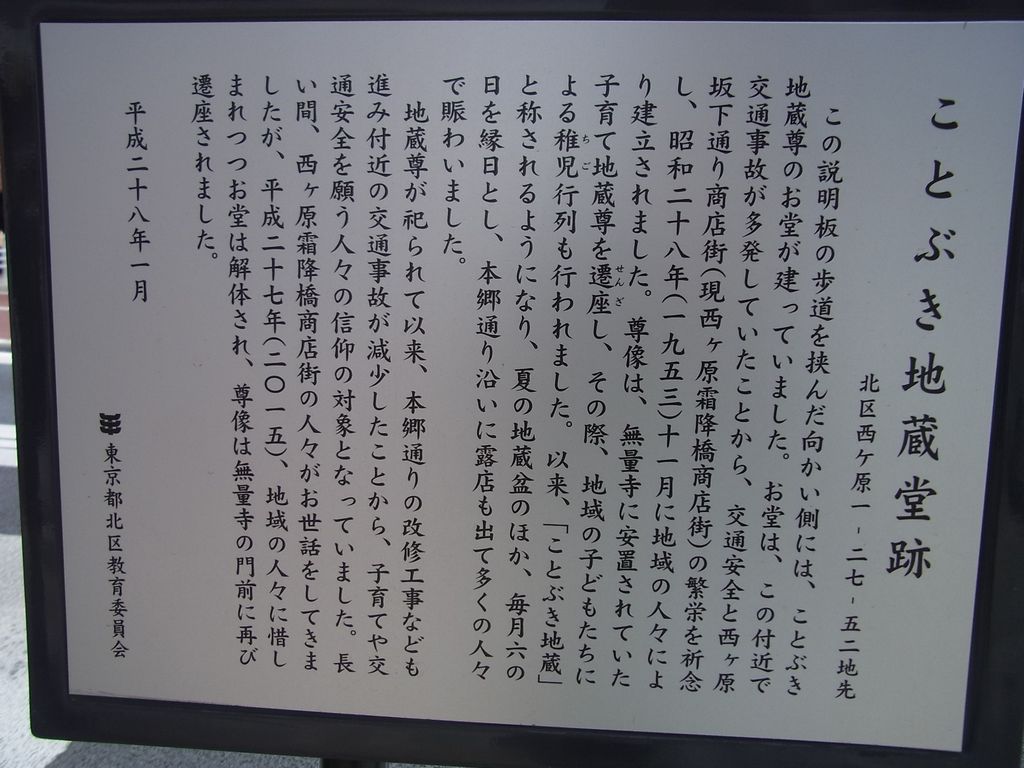 ことぶき地蔵堂跡
北区西ケ原一-二七-五二地先
この説明板の歩道を挟んだ向かい側には、ことぶき
地蔵尊のお堂が建っていました。お堂は、この付近で
交通事故が多発していたことから、交通安全と西ヶ原
坂下通り商店街(現西ヶ原霜降橋商店街)の繁栄を祈念
し、昭和二十八年(一九五三)十一月に地域の人々によ
り建立されました。尊像は、無量寺に安置されていた
子育て地蔵尊を遷座し、その際、地域の子どもたちに
よる稚児行列も行われました。以来、「ことぶき地蔵」
と称されるようになり、夏の地蔵盆のほか、毎月六の
日を縁日とし、本郷通り沿いに露店も出て多くの人々
で賑わいました。
地蔵尊が祀られて以来、本郷通りの改修工事なども
進み付近の交通事故が減少したことから、子育てや交
通安全を願う人々の信仰の対象となっていました。長
い間、西ヶ原霜降橋商店街の人々がお世話をしてきま
したが、平成二十七年(二〇一五)、地域の人々に惜し
まれつつお堂は解体され、尊像は無量寺の門前に再び
遷座されました。
平成二十八年一月
東京都北区教育委員会